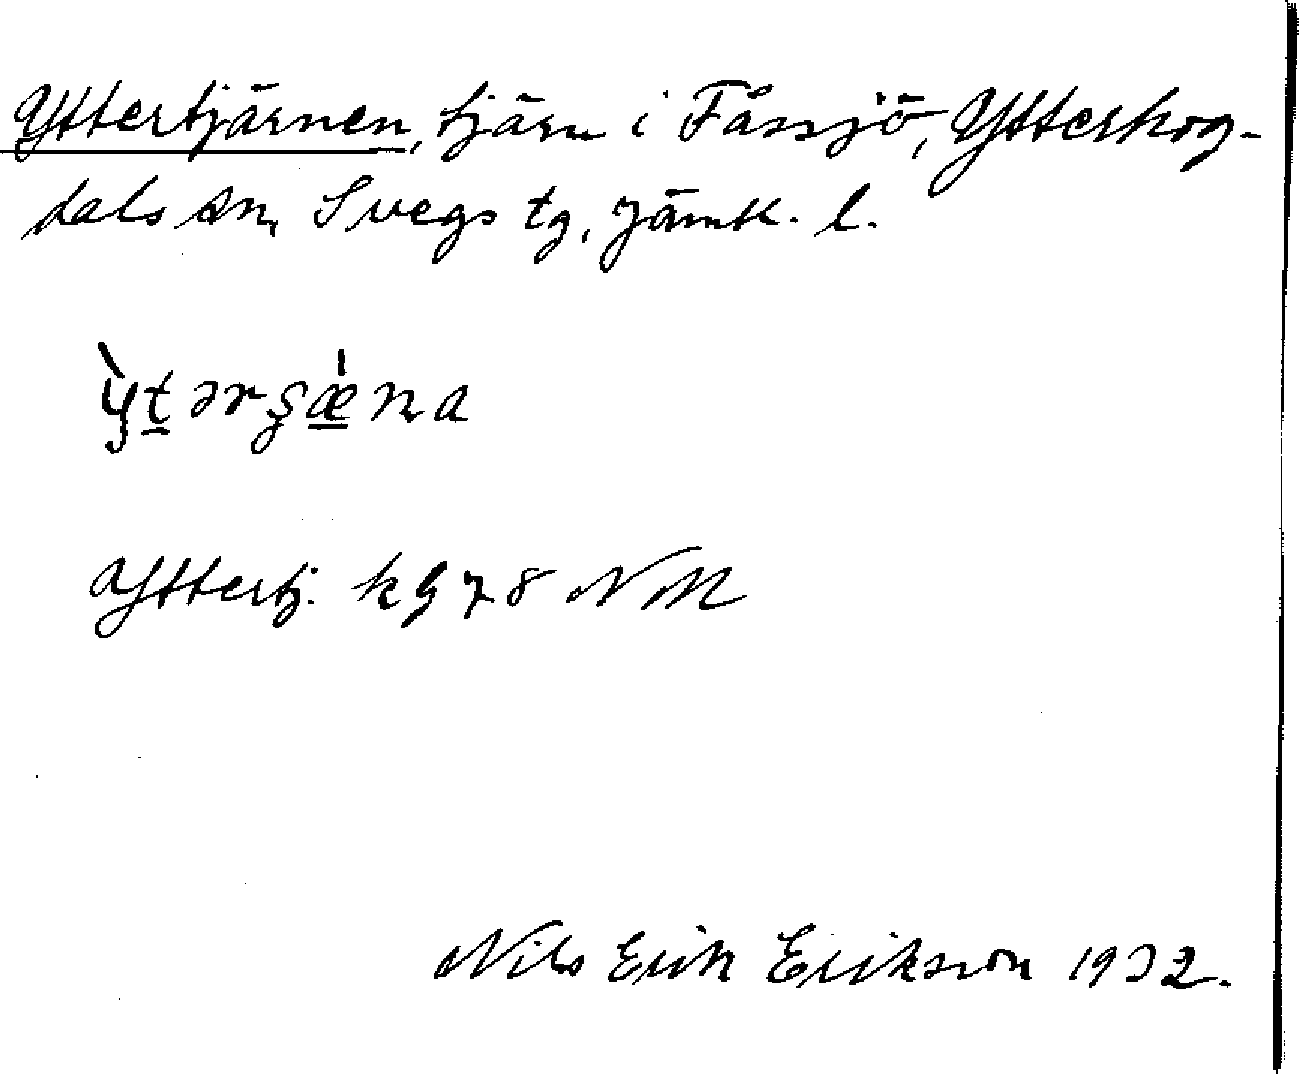 Yttertjärnen, tjärn i Fåssjö, Ytterhog-
dals sn, Svegs tg, Jämtl. l.
ỳt̲ərʂǽ̲na
Yttertj. k g 78 NM
Nils Erik Erikson 1932.